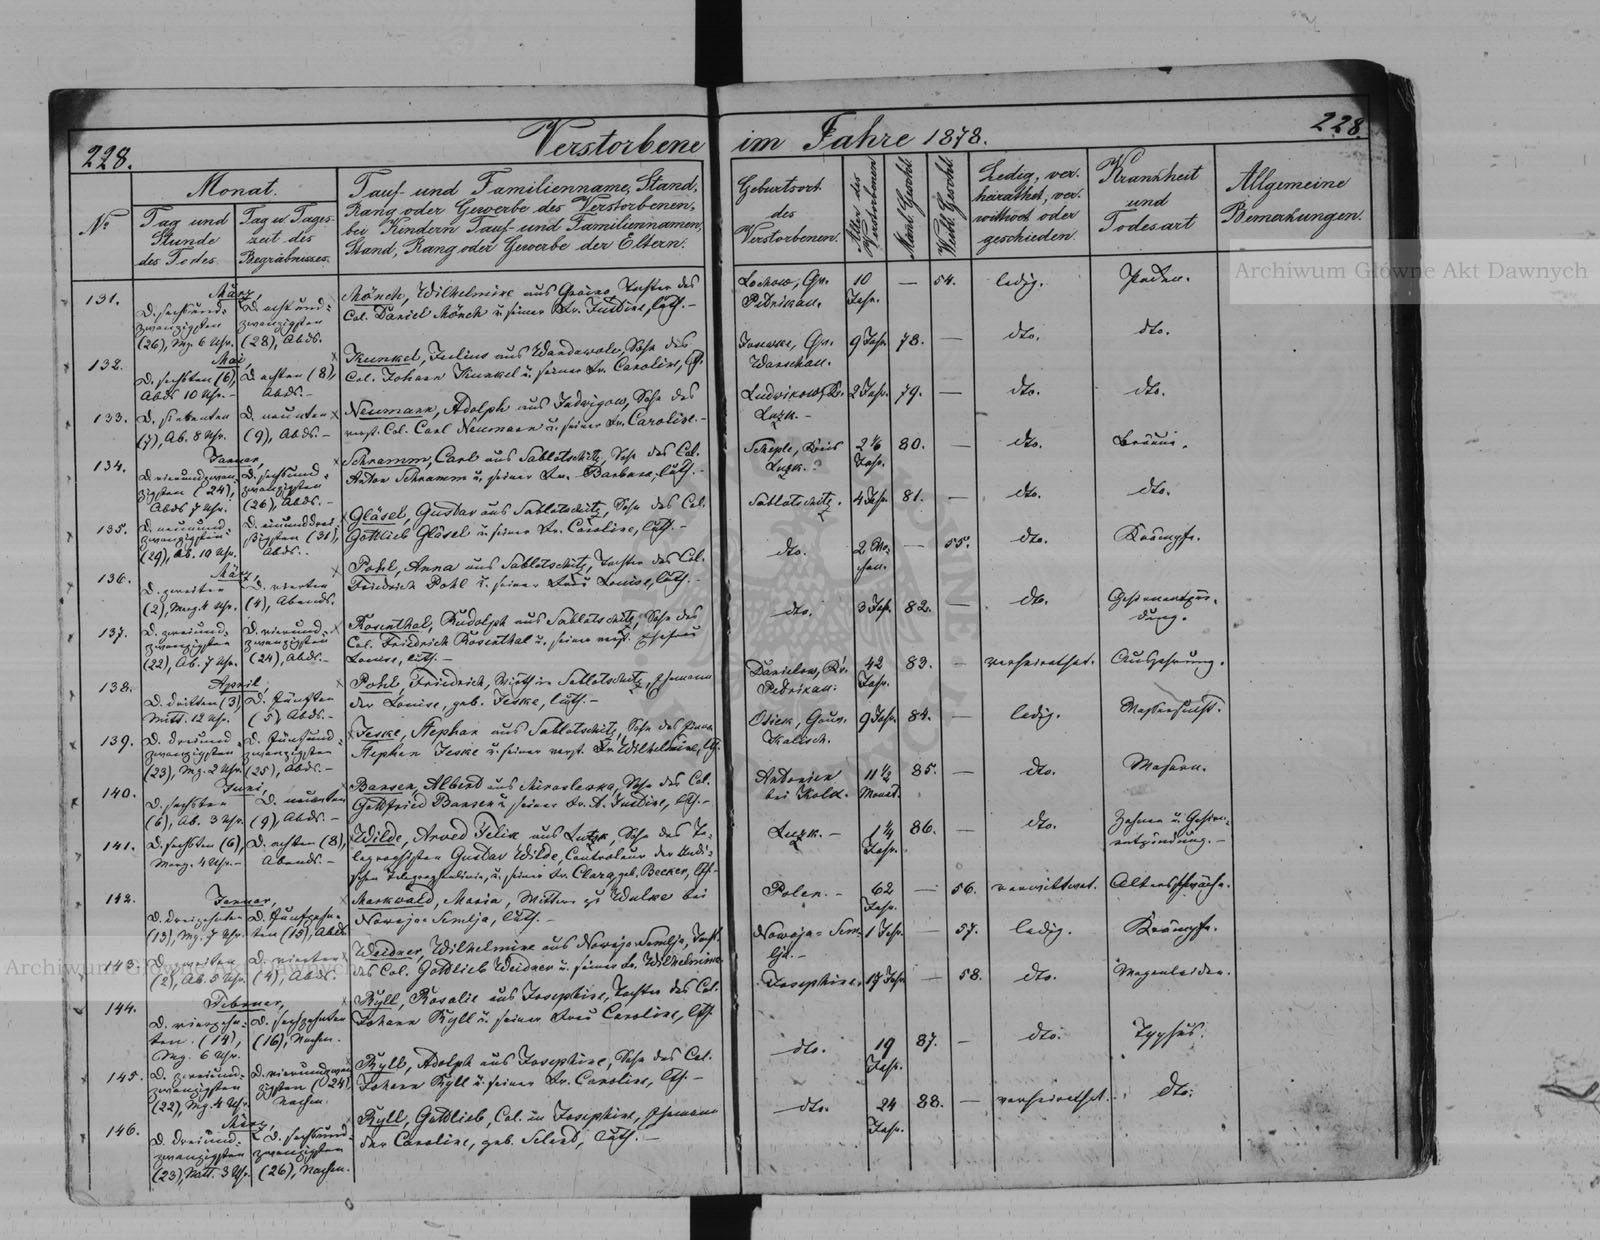 228.
Verstorbene im Jahre 1878.
228.
№
Monat.
Tag und
Stunde
des Todes.
Tag u. Tages-
zeit des
Begräbnisses.
Tauf- und Familienname, Stand,
Rang oder Gewerbe des Verstorbenen,
bei Kindern Tauf- und Familiennamen,
Stand, Rang oder Gewerbe der Eltern.
Geburtsort
des
Verstorbenen.
Alter des
Verstorbenen
Männl. Geschl.
Weibl. Geschl.
Ledig, ver-
heirathet, ver-
wittwet oder
geschieden.
Krankheit
und
Todesart
Allgemeine
Bemerkungen.
131.
März,
D. sechsund-
zwanzigsten
(26), Mg. 6 Uhr.
D. achtund-
zwanzigsten
(28), Abds.
Mönch, Wilhelmine aus Tochter des
Col. Daniel Mönch u. seiner Fr. Justine, luth. –
Lochow, Gv.
Petrikau.
10
Jahr.
—
54.
ledig.
Pocken.
132.
Mai,
D. sechsten (6),
Abds 10 Uhr. –
D. achten (8),
Abds. –
Kunkel, Julius aus Sohn des
Col. Johann Kunkel u. seiner Fr. Caroline,
Gv.
Warschau.
9 Jahr.
78.
—
dto.
dto.
133.
D. siebenten
(7), Ab. 8 Uhr.
D. neunten
(9), Abds. –
Neumann, Adolph aus Jadwigow, Sohn des
verst. Col. Carl Neumann u. seiner Fr. Caroline. –
Ludwikow, Kr.
Luzk. –
2 Jahr.
79.
—
dto.
dto.
134.
Januar,
D. vierundzwan-
zigsten (24),
Abds 7 Uhr.
D. sechsund-
zwanzigsten
(26), Abds. –
Schramm, Carl aus Sablotschitz, Sohn des Col.
Anton Schramm u. seiner Fr. Barbara, luth. –
Kreis
Luzk.
2 1/6
Jahr.
80.
—
dto.
Bräune.
135.
D. neunund-
zwanzigsten
(29), Ab. 10 Uhr.
D. einunddrei-
ßigsten (31),
Abds.
Gläsel, Gustav aus Sablotschitz, Sohn des Col.
Gottlieb Gläsel u. seiner Fr. Caroline, luth. –
Sablotschitz.
4 Jahr.
81.
—
dto.
dto.
136.
März,
D. zweiten
(2), Morg. 4 Uhr.
D. vierten
(4), Abends.
Pohl, Anna aus Sablotschitz, Tochter des Col.
Friedrich Pohl u. seiner Frau Louise, luth. –
dto.
2 Mo-
nat.
—
55.
dto.
Krämpfe.
137.
D. zweiund-
zwanzigsten
(22), Ab. 7 Uhr.
D. vierund-
zwanzigsten
(24), Abds. –
Rosenthal, Rudolph aus Sablotschitz, Sohn des
Col. Friedrich Rosenthal u. seiner verst. Ehefrau
Louise, luth. –
dto.
3 Jahr.
82.
—
dto.
Gehirnentzün-
dung.
138.
April
D. dritten (3)
Mitt. 12 Uhr.
D. fünften
(5) Abds. –
Pohl, Friedrich, Wirth in Sablotschitz, Ehemann
der Louise, geb. Jeske, luth. –
Danielow, Gv.
Petrikau.
42
Jahr.
83.
—
verheirathet.
Auszehrung.
139.
D. dreiund-
zwanzigsten
(23), Mg. 2 Uhr.
D. fünfund-
zwanzigsten
(25), Abds. –
Jeske, Stephan aus Sablotschitz, Sohn des
Stephan Jeske u. seiner verst. Fr. Wilhelmine,
Osiek, Gouv.
Kalisch.
9 Jahr.
84.
—
ledig.
Wassersucht.
140.
Juni,
D. sechsten
(6), Ab. 3 Uhr.
D. neunten
(9), Abds. –
Bansen, Albert aus Sohn des Col.
Gottfried Bansen u. seiner Fr. A. Justine, lth. –
Antonien
bei Kolk.
11 1/2
Monat.
85.
—
dto.
Masern.
141.
D. sechsten (6),
Morg. 4 Uhr. –
D. achten (8),
Abends. –
Wilde, Arved Felix aus Lutzk, Sohn des Te-
legraphisten Gustav Wilde, Controleur der Indi-
schen Telegraphenlinie, u. seiner Fr. Clara, geb. Becker, lth. –
Luzk. –
1 1/4
Jahr.
86.
—
dto.
Zahnen u. Gehirn-
entzündung. –
142.
Januar,
D. dreizehnten
(13), Mg. 7 Uhr.
D. fünfzehn-
ten (15), Abds
Markwald, Maria, Wittwe zu Wulka bei
Nowaja-Semlja, luth. –
Polen. –
62
Jahr.
—
56.
verwittwet.
Altersschwäche.
143.
D. zweiten
(2), Ab. 5 Uhr.
D. vierten
(4), Abds.
Weidner, Wilhelmine aus Nowaja-Semlja, Tocht.
des Col. Gottlieb Weidner u. seiner Fr. Wilhelmine.
Nowaja-Sem-
lja. –
1 Jahr.
—
57.
ledig.
Krämpfe.
144.
Februar,
D. vierzehn-
ten (14),
Mg. 6 Uhr.
D. sechzehnten
(16), Nachm.
Ryll, Rosalie aus Josephine, Tochter des Col.
Johann Ryll u. seiner Frau Caroline, lth.
Josephine.
17 Jahr.
—
58.
dto.
Magenleiden.
145.
D. zweiund-
zwanzigsten
(22), Mg. 4 Uhr.
D. vierundzwan-
zigsten (24)
Nachm.
Ryll, Adolph aus Josephine, Sohn des Col.
Johann Ryll u. seiner Fr. Caroline, lth. –
dto.
19
Jahr.
87.
—
dto.
Typhus.
146.
März,
D. dreiund-
zwanzigsten
(23), Mitt. 3 Uhr.
D. sechsund-
zwanzigsten
(26), Nachm.
Ryll, Gottlieb, Col. in Josephine, Ehemann
der Caroline, geb. luth. –
dto.
24
Jahr.
88.
—
verheirathet.
dto.
Archiwum Główne Akt Dawnych
Archiwum Główne Akt Dawnych